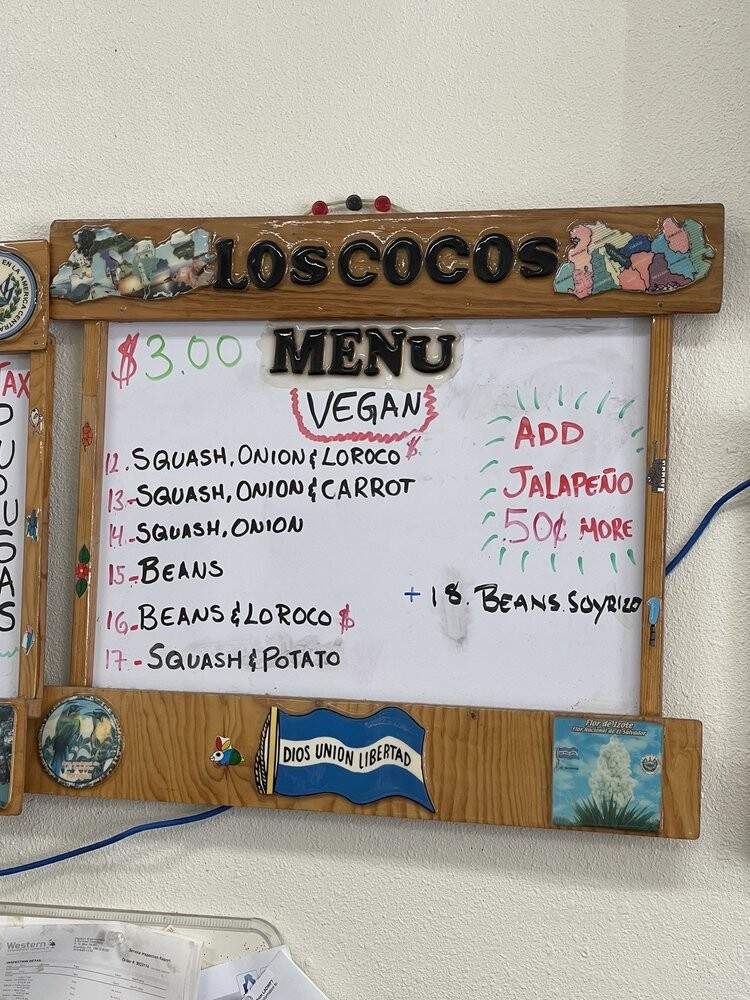 LOS COCOS
EN LA AMERICA CENTRAL
TAX
$3.00
MENU
VEGAN
12. SQUASH, ONION & LOROCO $
13- SQUASH, ONION & CARROT
14- SQUASH, ONION
15- BEANS
16- BEANS & LOROCO $
17- SQUASH & POTATO
ADD
JALAPEÑO
50¢ MORE
+ 18. BEANS. SOYRIZO
DIOS UNION LIBERTAD
Flor de Izote
Flor Nacional de El Salvador
Western
Service Inspection Report